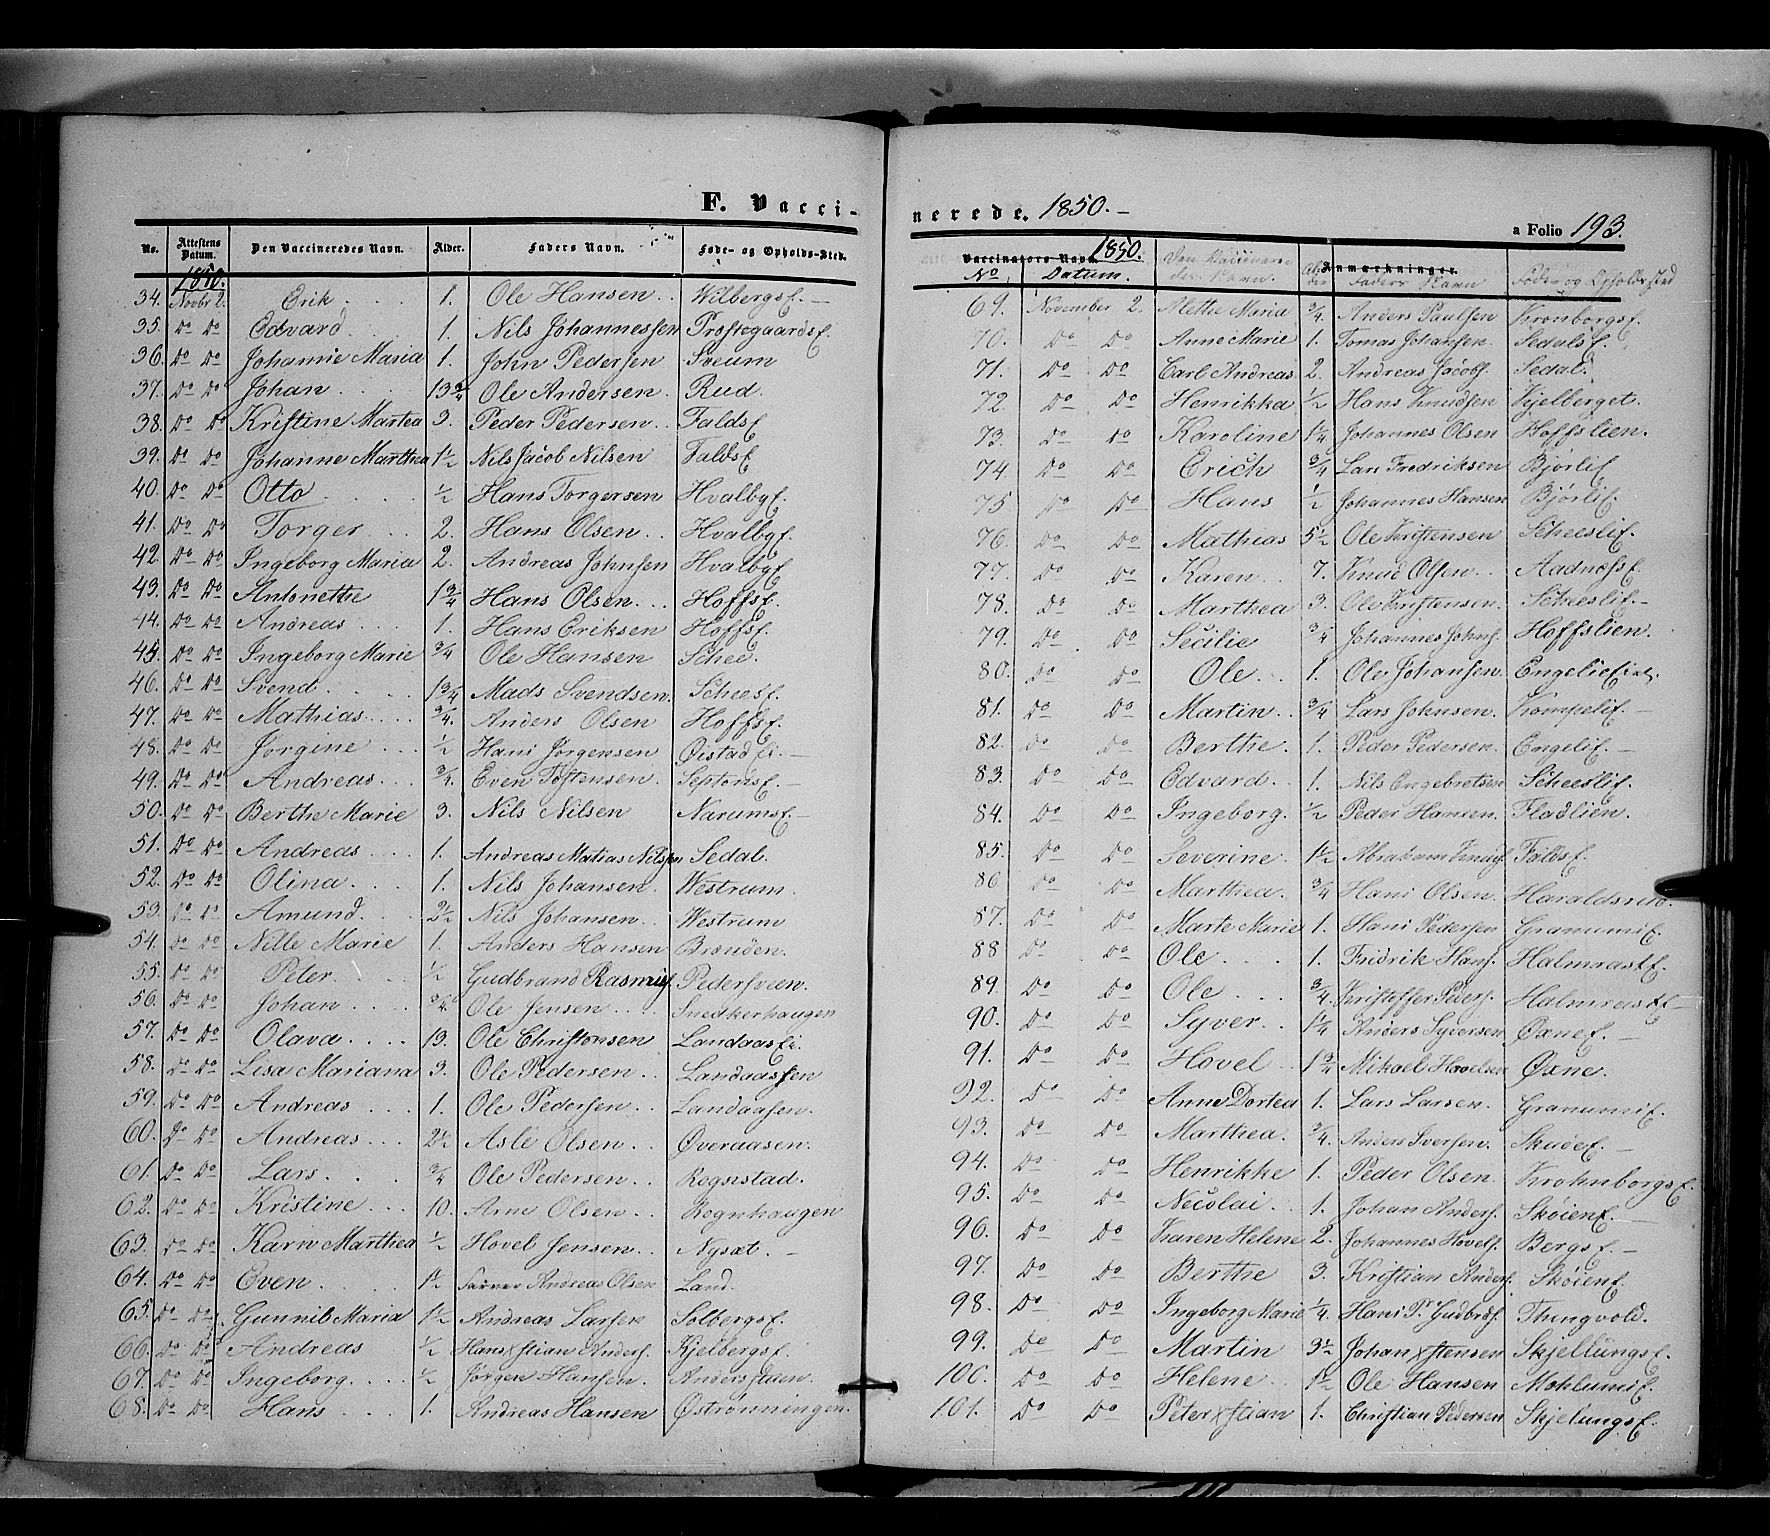 F. Vacci-
No. Attestens Datum. Den Vaccineredes Navn. Alder. Faders Navn. Føde- og Opholds-Sted.
1850.
34. Novbr 2. Erik 1. Ole Hansen Wilbergsf.
35. Do Do Edvard 1. Nils Johannessen Prostegaardsf.
36. Do Do Johanne Maria 1. John Pedersen Sveum
37. Do Do Johan 13 3/4 Ole Andersen Rud.
38. Do Do Kristine Martea 3. Peder Pedersen Faldsf
39. Do Do Johanne Marthea 1 1/2 Nils Jacob Nilsen Faldsf
40. Do Do Otto 1/2 Hans Torgersen Hvalbyf.
41. Do Do Torger 2. Hans Olsen Hvalbyf.
42. Do Do Ingeborg Maria 2. Andreas Johnsen Hvalbyf
43. Do Do Antonette 1 3/4 Hans Olsen Hoffsf.
44. Do Do Andreas 1. Hans Eriksen Hoffsf.
45. Do Do Ingeborg Marie 3/4 Ole Hansen Schee.
46. Do Do Svend 1 3/4 Mads Svendsen Scheesf.
47. Do Do Mathias 3/4. Anders Olsen Hoffsf.
48. Do Do Jørgine 1/2 Hans Jørgensen Øistad
49. Do Do Andreas 3/4. Even Tostensen
50. Do Do Berthe Marie 3. Nils Nilsen Narumsf.
51. Do Do Andreas 1. Andreas Matias Nilssen Sedal.
52. Do Do Olina 1. Nils Johansen Westrum.
53. Do Do Amund 2 1/2 Nils Johansen Westrum
54. Do Do Nille Marie 1. Anders Hansen Brænden.
55. Do Do Peter 1/2 Gudbrand Rasmusf. Pedersveen.
56. Do Do Johan 3/4 Ole Jensen Snedkerhaugen
57. Do Do Olava 13. Ole Christensen
58. Do Do Lisa Mariana 3. Ole Pedersen Landaasen
59. Do Do Andreas 1. Ole Pedersen Landaasen.
60. Do Do Andreas 2 1/2 Asle Olsen Øveraasen.
61. Do Do Lars 3/4 Ole Pedersen Rognstad.
62. Do Do Kristine 10. Arne Olsen Rognhaugen
63. Do Do Karn Marthea 1/2 Hovel Jensen Nysæt.
64. Do Do Even 1 1/2 Andreas Olsen Land.
65. Do Do Gunnild Maria 1 1/2 Andreas Larsen Solbergsf.
66. Do Do Andreas 1/2 Hans Xstian Andersf. Kjelbergsf.
67. Do Do Ingeborg 1/2 Jørgen Hansen.
68. Do Do Hans 1. Andreas Hansen Østrønningen.
nerede. 1850.
a Folio 193.
Vaccinators Navn. 1850. Anmærkninger.
No Datum. Den Vaccineredes Navn. Alder Faders Navn Føde- og Opholdssted
69. November 2. Alethe Maria 3/4 Anders Paulsen Kronborgsf.
70. Do Do Anne Marie 1. Tomas Johansen. Sedalsf.
71. Do Do Carl Andreas 2. Andreas Jacobs. Sedal.
72. Do Do Henrikka 1/2 Hans Knudsen Kjelberget.
73. Do Do Karoline 1 1/4 Johannes Olsen Hoffslien.
74 Do Do Erich 3/4 Lars Fredriksen Bjørlif
75 Do Do Hans 1/2 Johannes Hansen Bjørlif.
76. Do Do Mathias 5 1/2 Ole Kristensen Scheeslif.
77. Do Do Karen 7. Knud Olsen Aadnæsf.
78. Do Do Marthea 3. Ole Kristensen. Scheeslif.
79. Do Do Secilie 3/4 Johannes Johnsf. Hoffslien.
80. Do Do Ole 1. Ole Johansen.
81. Do Do Martin 3/4 Lars Johnsen. Kompelif.
82. Do Do Berthe. 1. Peder Pedersen. Engelif.
83. Do Do Edvard 1. Nils Engebretsen Scheeslif.
84. Do Do Ingeborg. 1/2 Peder Hansen. Fladlien.
85. Do Do Severine. 1 1/2 Abraham Knudsf Faldsf.
86 Do Do Marthea 3/4 Hans Olsen Haraldsrud.
87. Do Do Marte Marie 1. Hans Pedersen Granumsf.
88 Do Do Ole 1. Fridrik Hansf. Halmrastf.
89. Do Do Ole 3/4. Kristoffer Pedersf. Halmrastf.
90. Do Do Syver 1 1/4 Anders Syversen Øxnef.
91. Do Do Hovel 1 3/4 Mikael Hovelsen Øxne.
92. Do Do Anne Dortea 1. Lars Larsen. Granumsf.
93. Do Do Marthea. 3/4. Anders Iversen.
94. Do Do Henrikke 1. Peder Olsen Krohnborgsf.
95. Do Do Nicolai 1. Johan Andersf. Skøienf.
96. Do Do Karen Helene 2. Johannes Hovelsf. Bergsf.
97. Do Do Berthe 3. Kristian Andersf. Skøienf.
98. Do Do Ingeborg Marie 1/4 Hans P. Gudbrdsf. Thingvold.
99. Do Do Martin 3 1/2 Johan Xstensen Skjellungsf.
100. Do Do Helene 1 1/2 Ole Hansen Mohlumsf.
101. Do Do Peter Xstian 1. Christian Pedersen Skjelungsf.